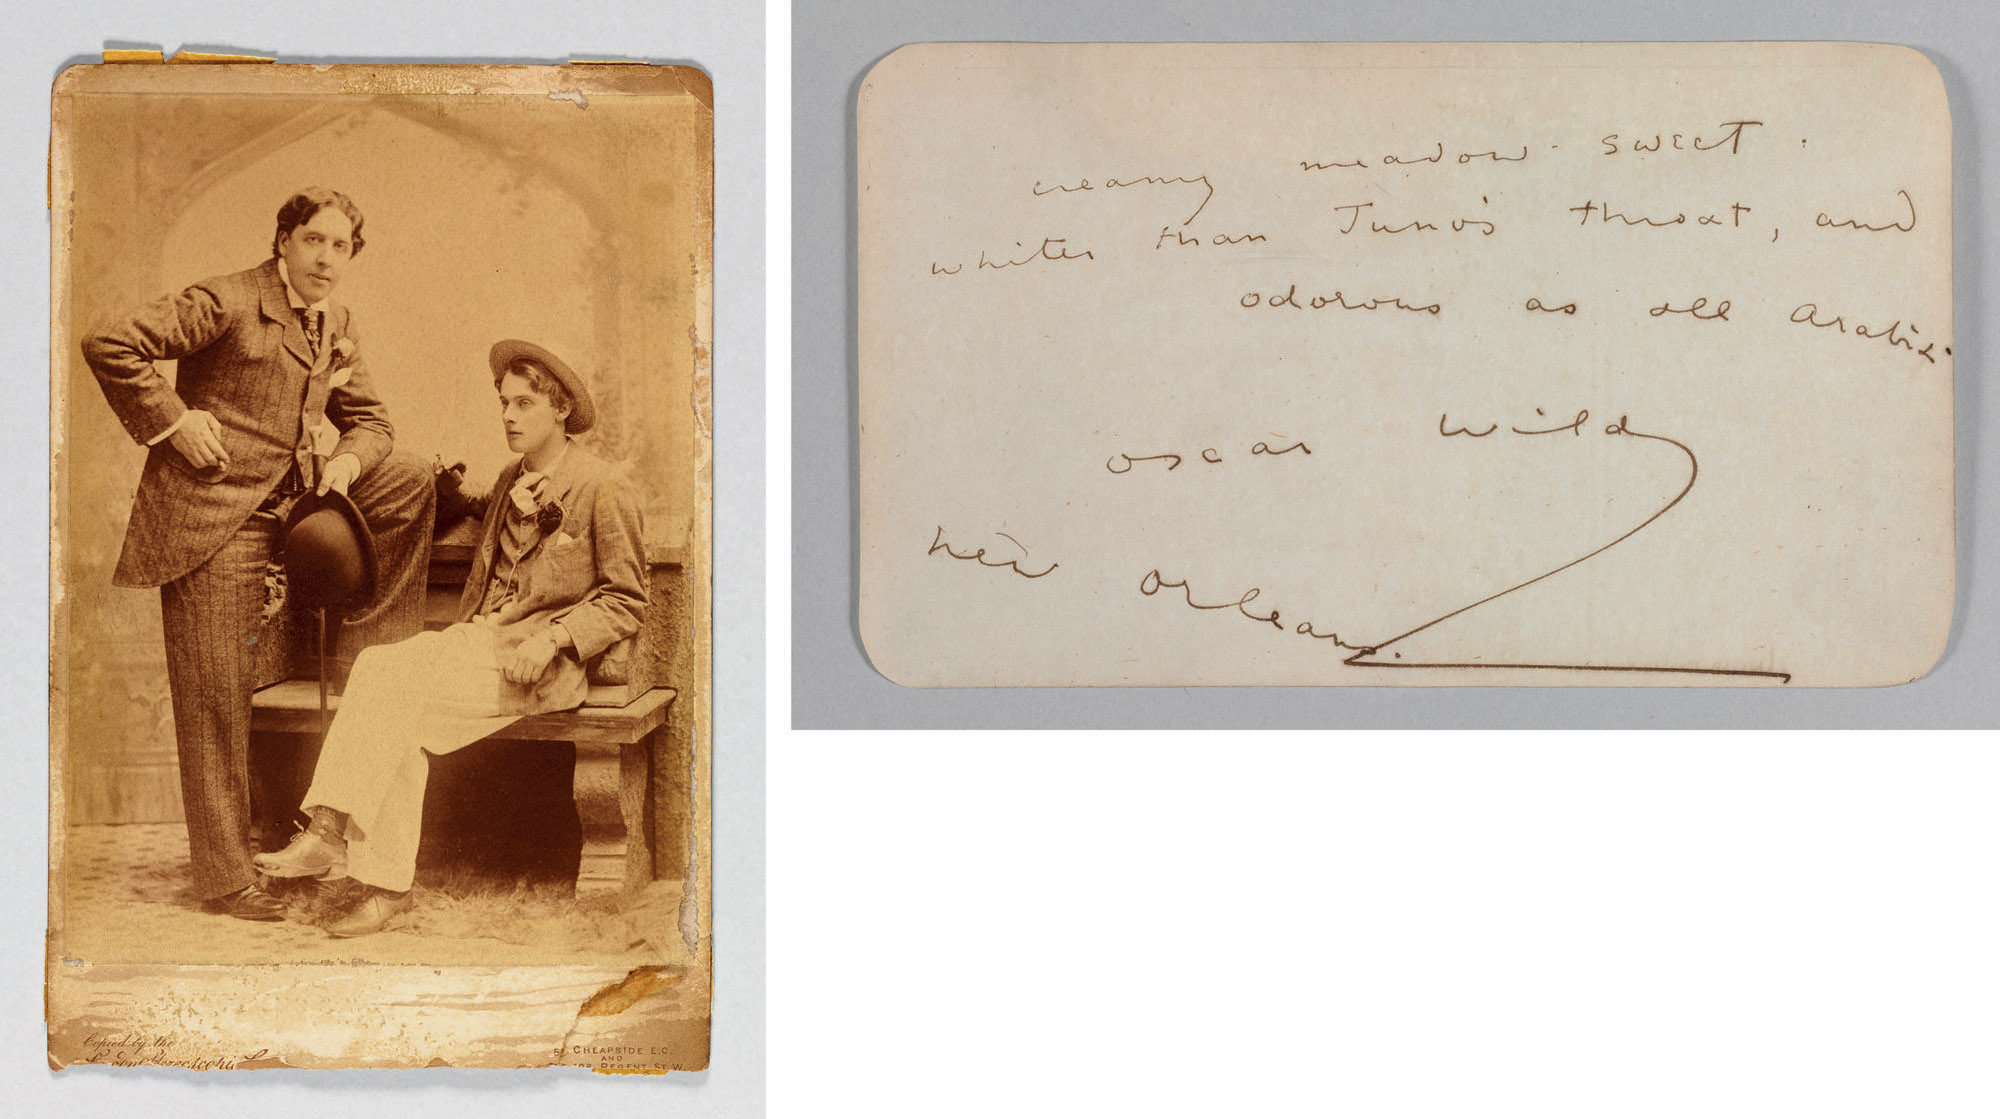 Copied by the
51 CHEAPSIDE E.C.
AND
REGENT ST W.
creamy meadow-sweet.
whiter than Juno's throat, and
odorous as all Arabia.
Oscar Wilde
New Orleans.